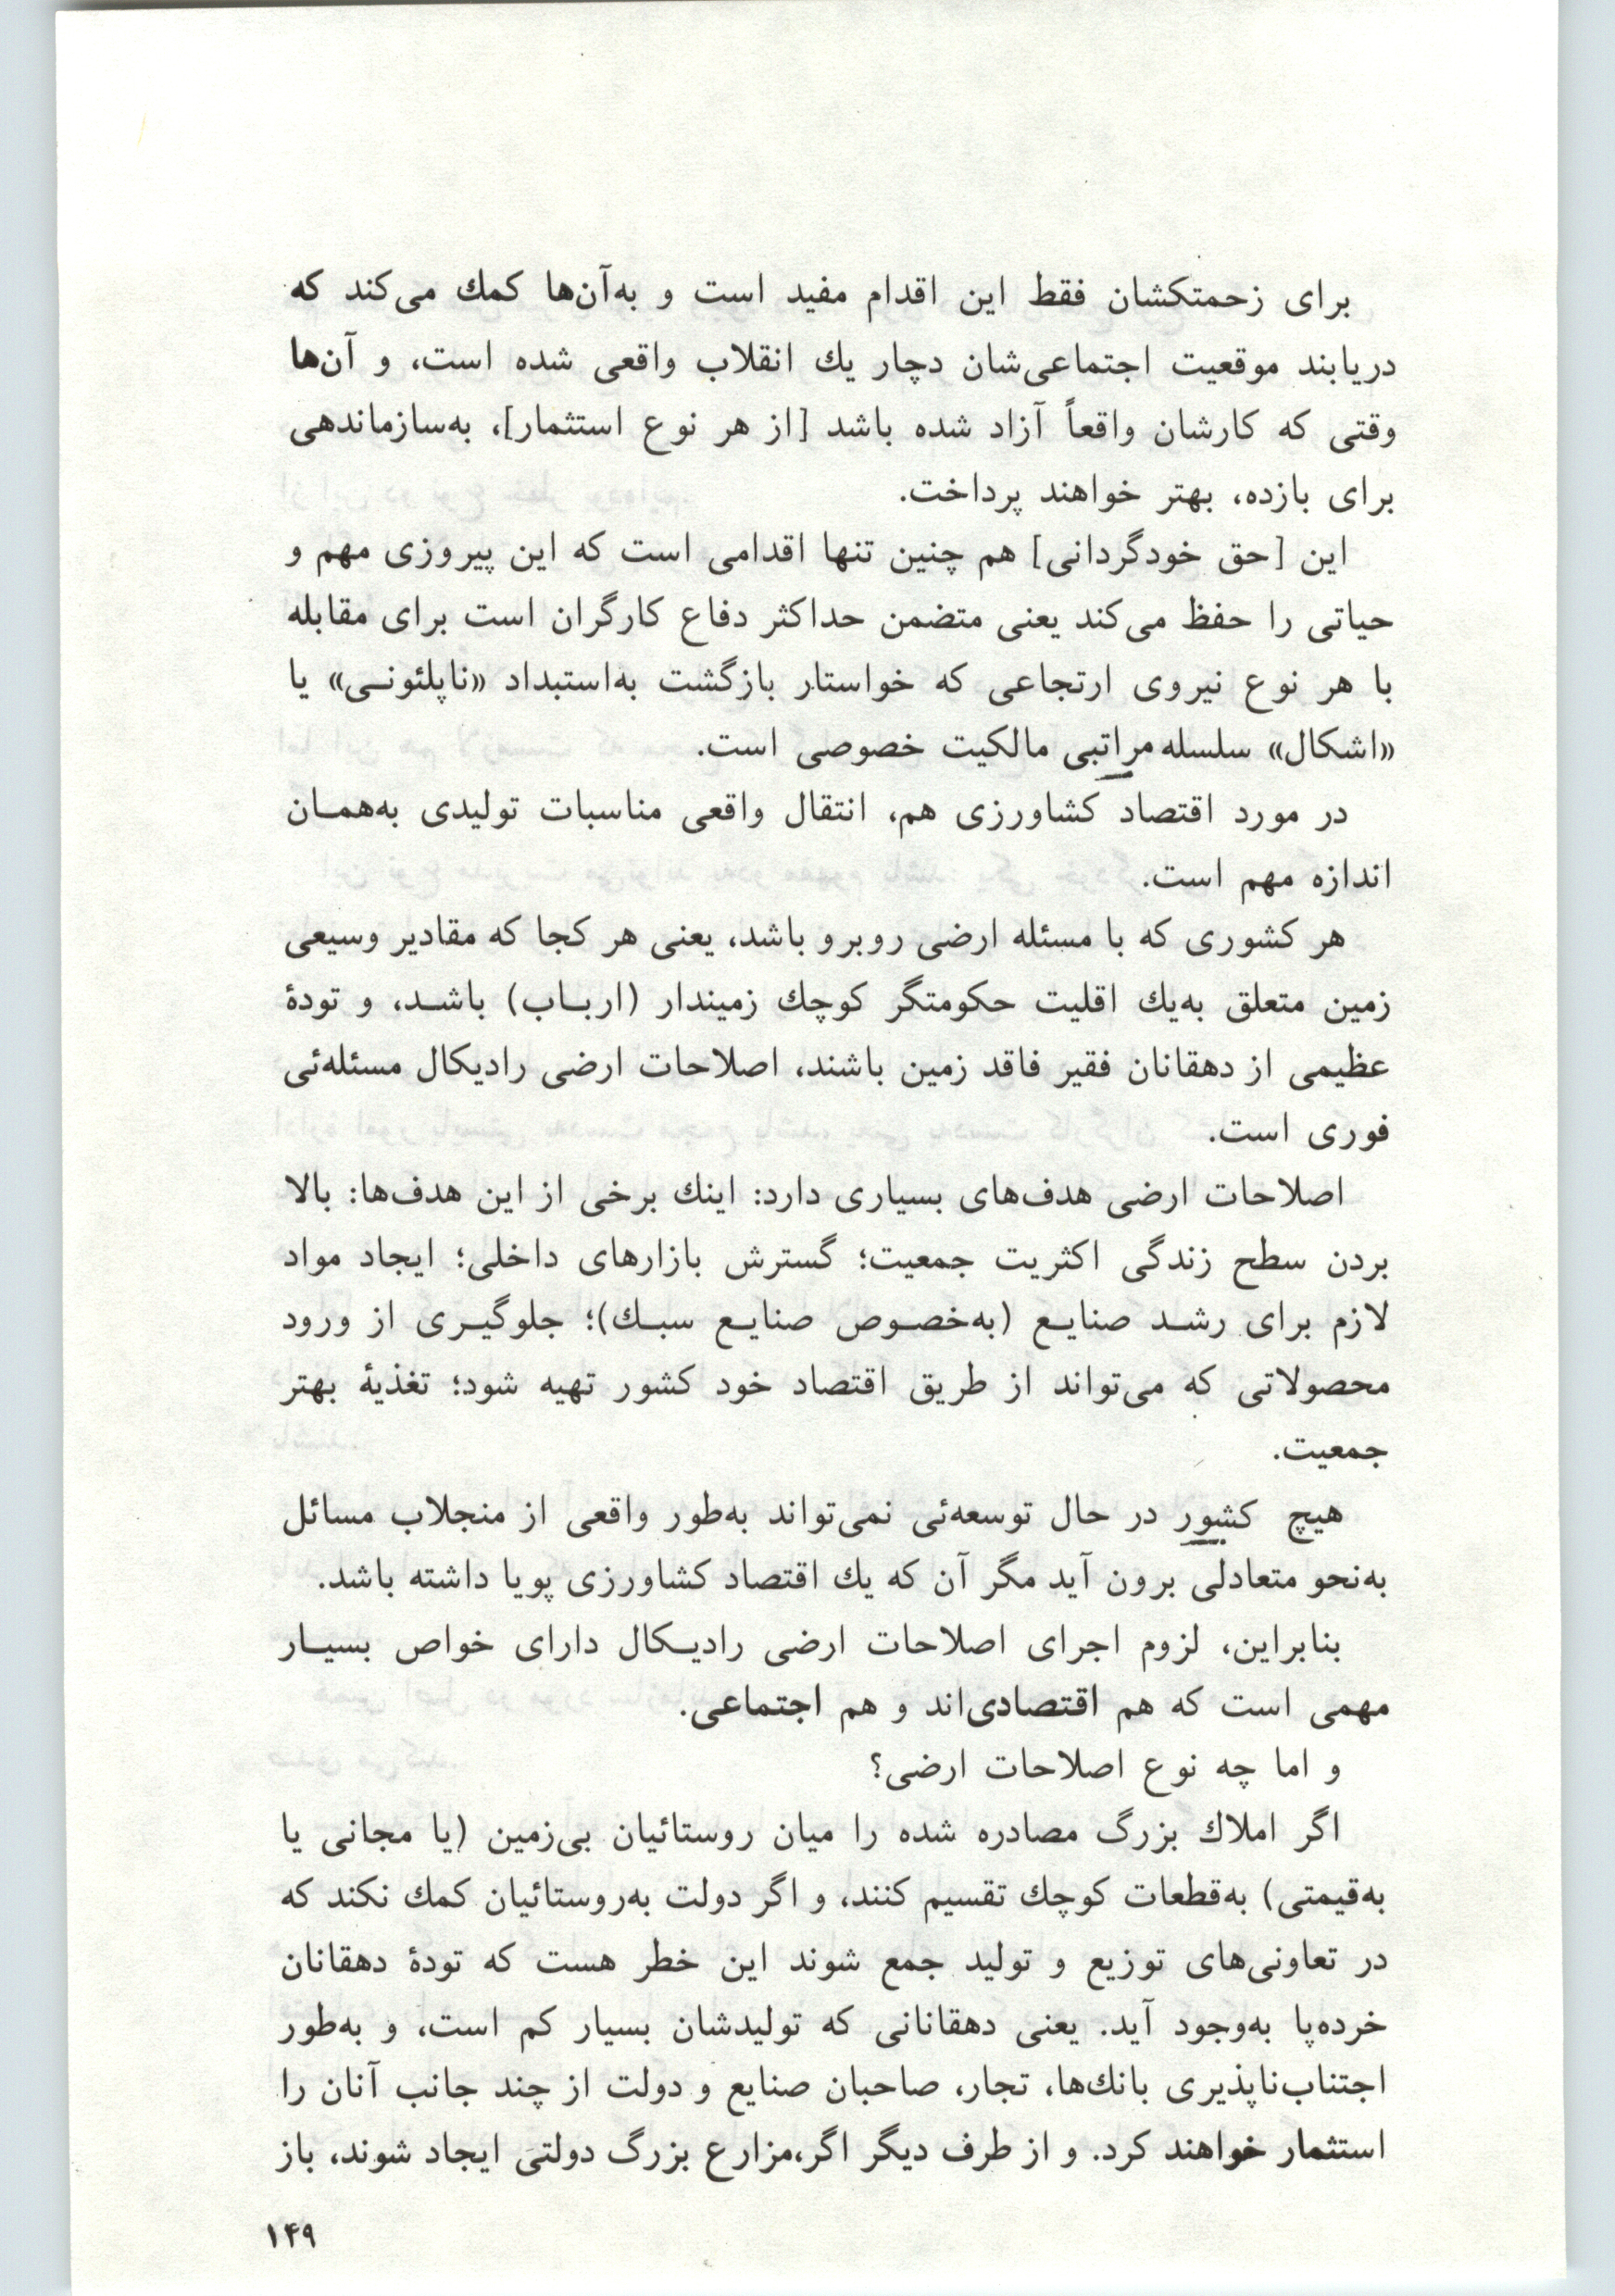 برای زحمتکشان فقط این اقدام مفید است و به‌آن‌ها کمك می‌کند که
دریابند موقعیت اجتماعی‌شان دچار یك انقلاب واقعی شده است، و آن‌ها
وقتی که کارشان واقعاً آزاد شده باشد [از هر نوع استثمار]، به‌سازماندهی
برای بازده، بهتر خواهند پرداخت.
این [حق خودگردانی] هم چنین تنها اقدامی است که این پیروزی مهم و
حیاتی را حفظ می‌کند یعنی متضمن حداکثر دفاع کارگران است برای مقابله
با هر نوع نیروی ارتجاعی که خواستار بازگشت به‌استبداد «ناپلئونـی» یا
«اشکال» سلسله مراتبی مالکیت خصوصی است.
در مورد اقتصاد کشاورزی هم، انتقال واقعی مناسبات تولیدی به‌همـان
اندازه مهم است.
هر کشوری که با مسئله ارضی روبرو باشد، یعنی هر کجا که مقادیر وسیعی
زمین متعلق به‌یك اقلیت حکومتگر کوچك زمیندار (اربـاب) باشـد، و تودۀ
عظیمی از دهقانان فقیر فاقد زمین باشند، اصلاحات ارضی رادیکال مسئله‌ئی
فوری است.
اصلاحات ارضی هدف‌های بسیاری دارد: اینك برخی از این هدف‌ها: بالا
بردن سطح زندگی اکثریت جمعیت؛ گسترش بازارهای داخلی؛ ایجاد مواد
لازم برای رشـد صنایـع (به‌خصـوص صنایـع سبـك)؛ جلوگیـری از ورود
محصولاتی که می‌تواند از طریق اقتصاد خود کشور تهیه شود؛ تغذیۀ بهتر
جمعیت.
هیچ کشور در حال توسعه‌ئی نمی‌تواند به‌طور واقعی از منجلاب مسائل
به‌نحو متعادلی برون آید مگر آن که یك اقتصاد کشاورزی پویا داشته باشد.
بنابراین، لزوم اجرای اصلاحات ارضی رادیـکال دارای خواص بسیـار
مهمی است که هم اقتصادی‌اند و هم اجتماعی.
و اما چه نوع اصلاحات ارضی؟
اگر املاك بزرگ مصادره شده را میان روستائیان بی‌زمین (یا مجانی یا
به‌قیمتی) به‌قطعات کوچك تقسیم کنند، و اگر دولت به‌روستائیان کمك نکند که
در تعاونی‌های توزیع و تولید جمع شوند این خطر هست که تودۀ دهقانان
خرده‌پا به‌وجود آید. یعنی دهقانانی که تولیدشان بسیار کم است، و به‌طور
اجتناب‌ناپذیری بانك‌ها، تجار، صاحبان صنایع و دولت از چند جانب آنان را
استثمار خواهند کرد. و از طرف دیگر اگر،مزارع بزرگ دولتی ایجاد شوند، باز
۱۴۹